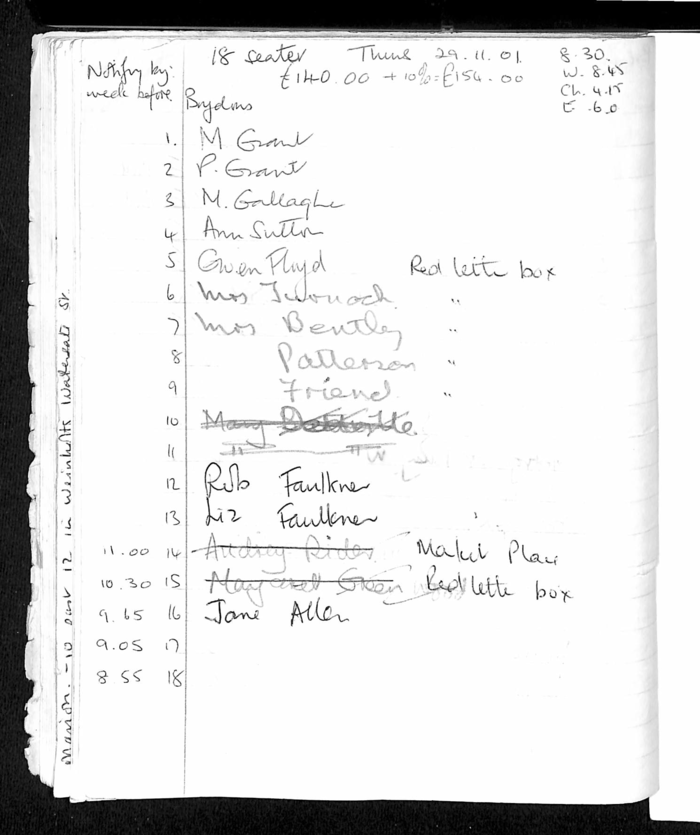 18 seater Thurs 29.11.01. 8.30.
Notify by: £140.00 + 10% = £154.00 W. 8.45
week before. Ch. 4.15
Brydons E .6.0
1. M Grant
2 P. Grant
3 M. Gallaghe
4 Ann Sutton
5 Gwen Floyd Red lette box
6 Mrs "
7 Mrs Bentley "
8 Patterson "
9 Friend "
10 Mary
11 " "
12 Rob Faulkner
13 Liz Faulkner
11.00 14 Audrey Rider Market Place
10.30 15 Margaret Green Red lette box
9.65 16 Jane Allen
9.05 17
8 55 18
Marion. - 10 past 12 in